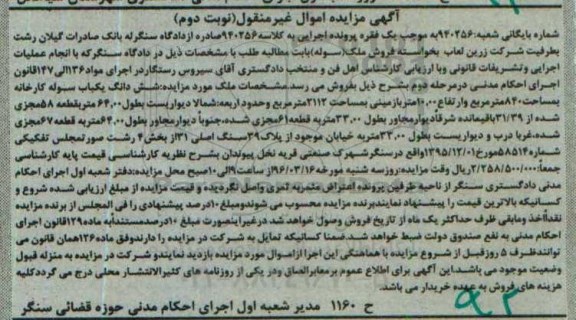 آگهی مزایده اموال غیرمنقول(نوبت دوم)
شماره بایگانی شعبه:۹۴۰۲۵۶به موجب یک فقره پرونده اجرایی به کلاسه۹۴۰۲۵۶صادره ازدادگاه سنگرله بانک صادرات گیلان رشت
بطرفیت شرکت زرین لعاب بخواسته فروش ملک(سوله)بابت مطالبه طلب با مشخصات ذیل در دادگاه سنگرکه با انجام عملیات
اجرایی وتشریفات قانونی وبا ارزیابی کارشناس اهل فن و منتخب دادگستری آقای سیروس رستگاردر اجرای مواد۱۳۶الی۱۴۷قانون
اجرای احکام مدنی درمرحله دوم بشرح ذیل بفروش می رسد.مشخصات ملک مورد مزایده:شش دانگ یکباب سوله کارخانه
بمساحت۸۴۰مترمربع وارتفاع۱۰,۰۰مترباز‌مینی بمساحت۲۱۱۲مترمربع وحدود اربعه:شمالا دیواریست بطول۶۴,۰۰متربقطعه۵۸مجزی
شده از۳۹/۳۱باقیمانده شرقادیوارمجاور بطول۳۳,۰۰متربه قطعه۶۱مجزی شده،جنوباً دیوارمجاور بطول۶۴,۰۰متربه قطعه۶۷مجزی
شده،غربا درب و دیواریست بطول۳۳,۰۰متربه خیابان موجود از پلاک۳۹سنگ اصلی۳۱از بخش۴ رشت صورتمجلس تفکیکی
شماره۵۸۵۱۴مورخ۱۳۹۵/۱۲/۰۱واقع درسنگرشهرک صنعتی قریه نخل پیوندان بشرح نظریه کارشناسی قیمت پایه کارشناسی
جمعاً۲/۲۵۸/۵۰۰/۰۰۰ریال وقت مزایده:روزسه شنبه مورخه۹۶/۰۳/۱۶از ساعت۹الی۱۰صبح محل مزایده:دفتر شعبه اول اجرای احکام
مدنی دادگستری سنگر از ناحیه طرفین پرونده اعتراض مثمربه ثمری واصل نگردیده و قیمت مزایده از مبلغ ارزیابی شده شروع و
کسانیکه بالاترین قیمت را پیشنهاد نمایندبرنده مزایده محسوب می شوندومبلغ۱۰درصد پیشنهادی را فی المجلس از برنده مزایده
نقداًاخذ ومابقی ظرف حداکثر یک ماه از تاریخ فروش وصول خواهد شد درغیراینصورت مبلغ ۱۰درصدمستنداًبه ماده۱۲۹قانون اجرای
احکام مدنی به نفع صندوق دولت ضبط خواهد شد.ضمنا کسانیکه تمایل به شرکت در مزایده را دارندوفق ماده۱۳۶همان قانون می
توانندظرف ۵ روزقبل از شروع مزایده با هماهنگی این اجرا ازاموال مورد مزایده بازدید نمایندو شرکت در مزایده به منزله قبول
وضعیت موجود می باشد.این آگهی برای اطلاع عموم برمعابرالصاق ودر یکی از روزنامه های کثیرالانتشار محلی درج می گرددکلیه
هزینه های فروش به عهده خریدار می باشد.
ح ۱۱۶۰ مدیر شعبه اول اجرای احکام مدنی حوزه قضائی سنگر